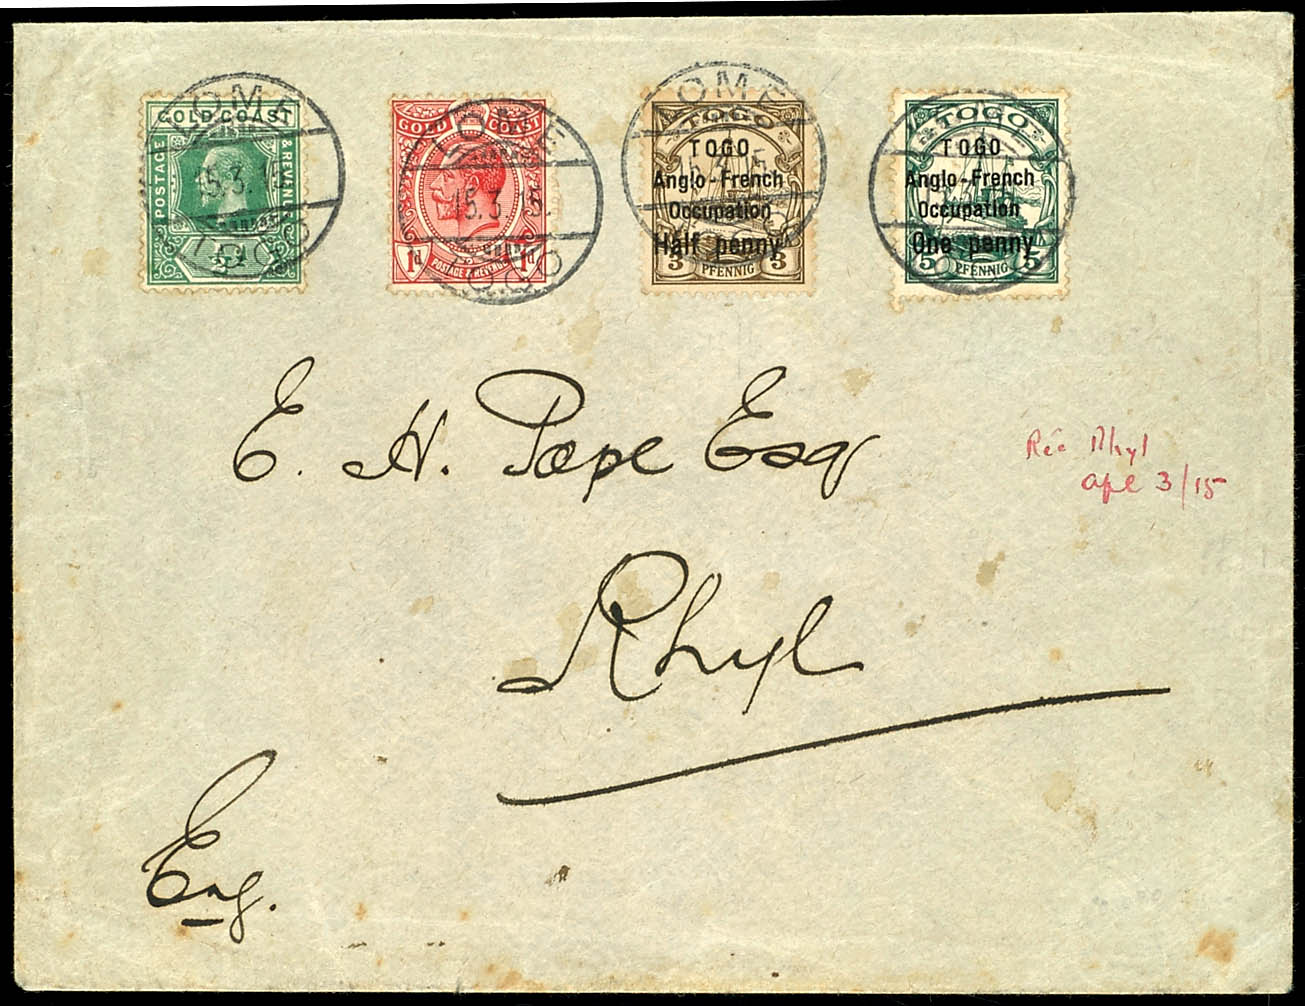 GOLD COAST
POSTAGE
& REVENUE
½ᵈ
LOME
15.3.15.
TOGO
GOLD COAST
1ᵈ POSTAGE & REVENUE 1ᵈ
LOME
15.3.15.
TOGO
TOGO
TOGO
Anglo-French
Occupation
Half penny
3 PFENNIG 3
LOME
TOGO
TOGO
Anglo-French
Occupation
One penny
5 PFENNIG 5
E. H. Pope Esq
Rec Rhyl
Apl 3/15
Rhyl
Eng.